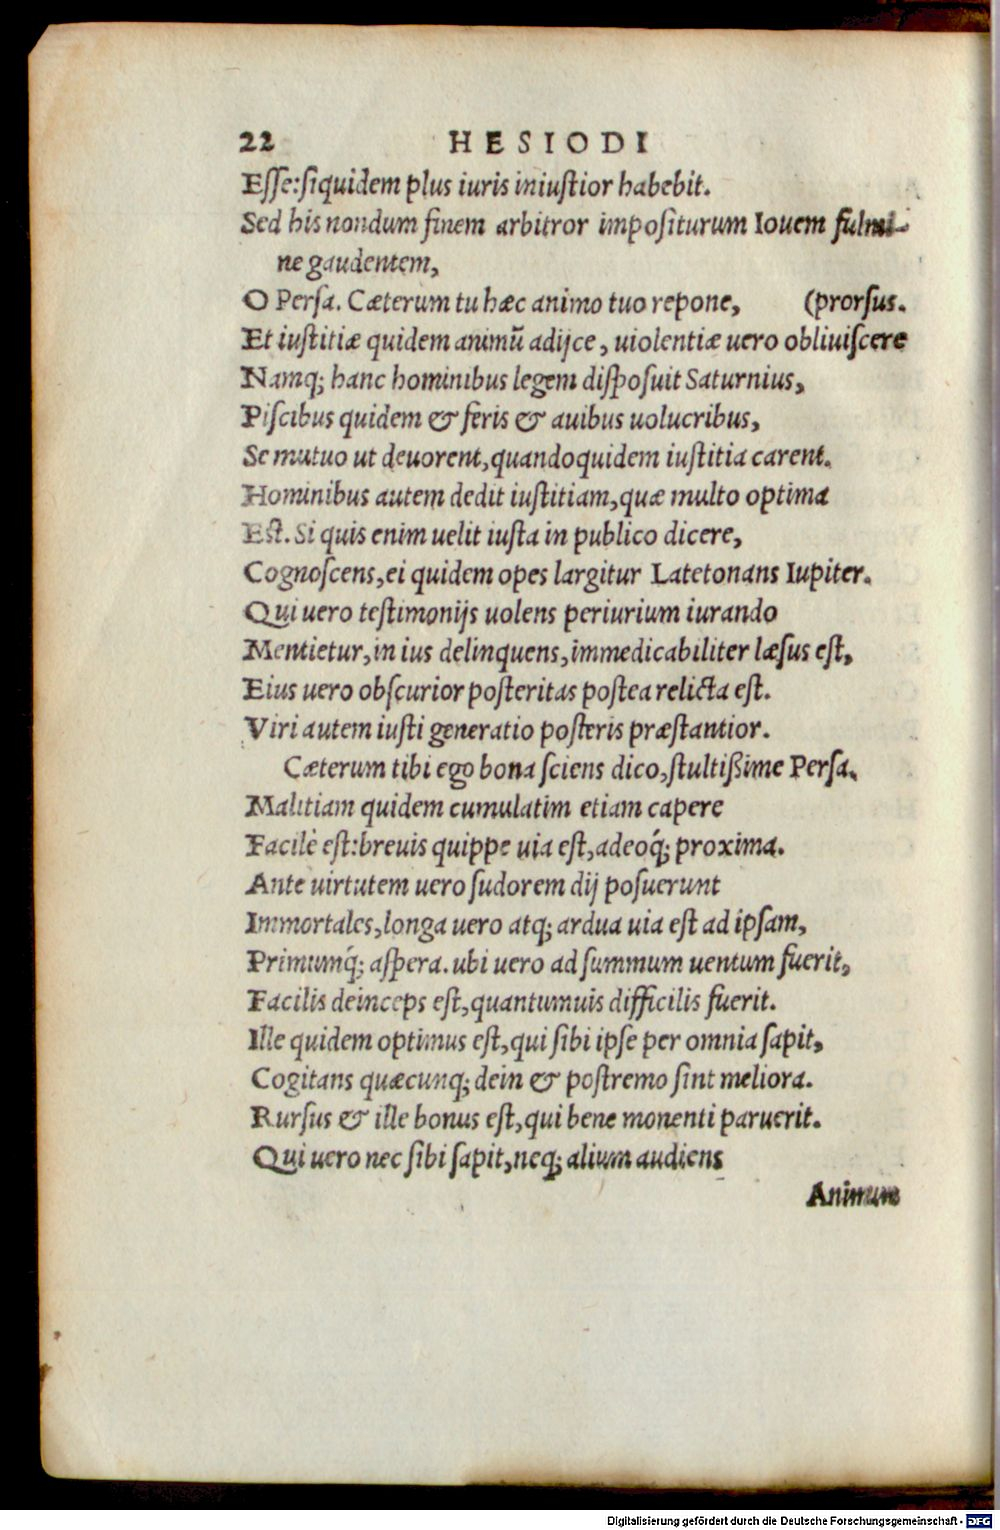 22 HESIODI
Esse:siquidem plus iuris iniustior habebit.
Sed his nondum finem arbitror impositurum Iouem fulmi-
ne gaudentem,
O Persa. Cæterum tu hæc animo tuo repone, (prorsus.
Et iustitiæ quidem animũ adijce, uiolentiæ uero obliuiscere
Namq; hanc hominibus legem disposuit Saturnius,
Piscibus quidem & feris & auibus uolucribus,
Se mutuo ut deuorent,quandoquidem iustitia carent.
Hominibus autem dedit iustitiam,quæ multo optima
Est. Si quis enim uelit iusta in publico dicere,
Cognoscens,ei quidem opes largitur Latetonans Iupiter.
Qui uero testimonijs uolens periurium iurando
Mentietur,in ius delinquens,immedicabiliter læsus est,
Eius uero obscurior posteritas postea relicta est.
Viri autem iusti generatio posteris præstantior.
Cæterum tibi ego bona sciens dico,stultißime Persa.
Malitiam quidem cumulatim etiam capere
Facilè est:breuis quippe uia est,adeoq́; proxima.
Ante uirtutem uero sudorem dij posuerunt
Immortales,longa uero atq; ardua uia est ad ipsam,
Primumq́; aspera. ubi uero ad summum uentum fuerit,
Facilis deinceps est,quantumuis difficilis fuerit.
Ille quidem optimus est,qui sibi ipse per omnia sapit,
Cogitans quæcunq; dein & postremo sint meliora.
Rursus & ille bonus est,qui bene monenti paruerit.
Qui uero nec sibi sapit,neq; alium audiens
Animum
Digitalisierung gefördert durch die Deutsche Forschungsgemeinschaft - DFG